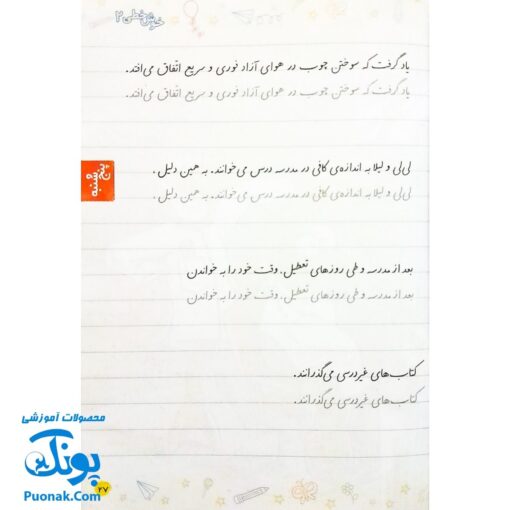 خوش‌خطی ۲
یاد گرفت که سوختن چوب در هوای آزاد فوری و سریع اتّفاق می‌افتد.
یاد گرفت که سوختن چوب در هوای آزاد فوری و سریع اتّفاق می‌افتد.
پنج شنبه
لی‌لی و لیلا به اندازه‌ی کافی در مدرسه درس می‌خوانند. به همین دلیل.
لی‌لی و لیلا به اندازه‌ی کافی در مدرسه درس می‌خوانند. به همین دلیل.
بعد از مدرسه و طی روزهای تعطیل. وقت خود را به خواندن
بعد از مدرسه و طی روزهای تعطیل. وقت خود را به خواندن
کتاب‌های غیردرسی می‌گذرانند.
کتاب‌های غیردرسی می‌گذرانند.
محصولات آموزشی
پونک
Puonak.Com
۲۷